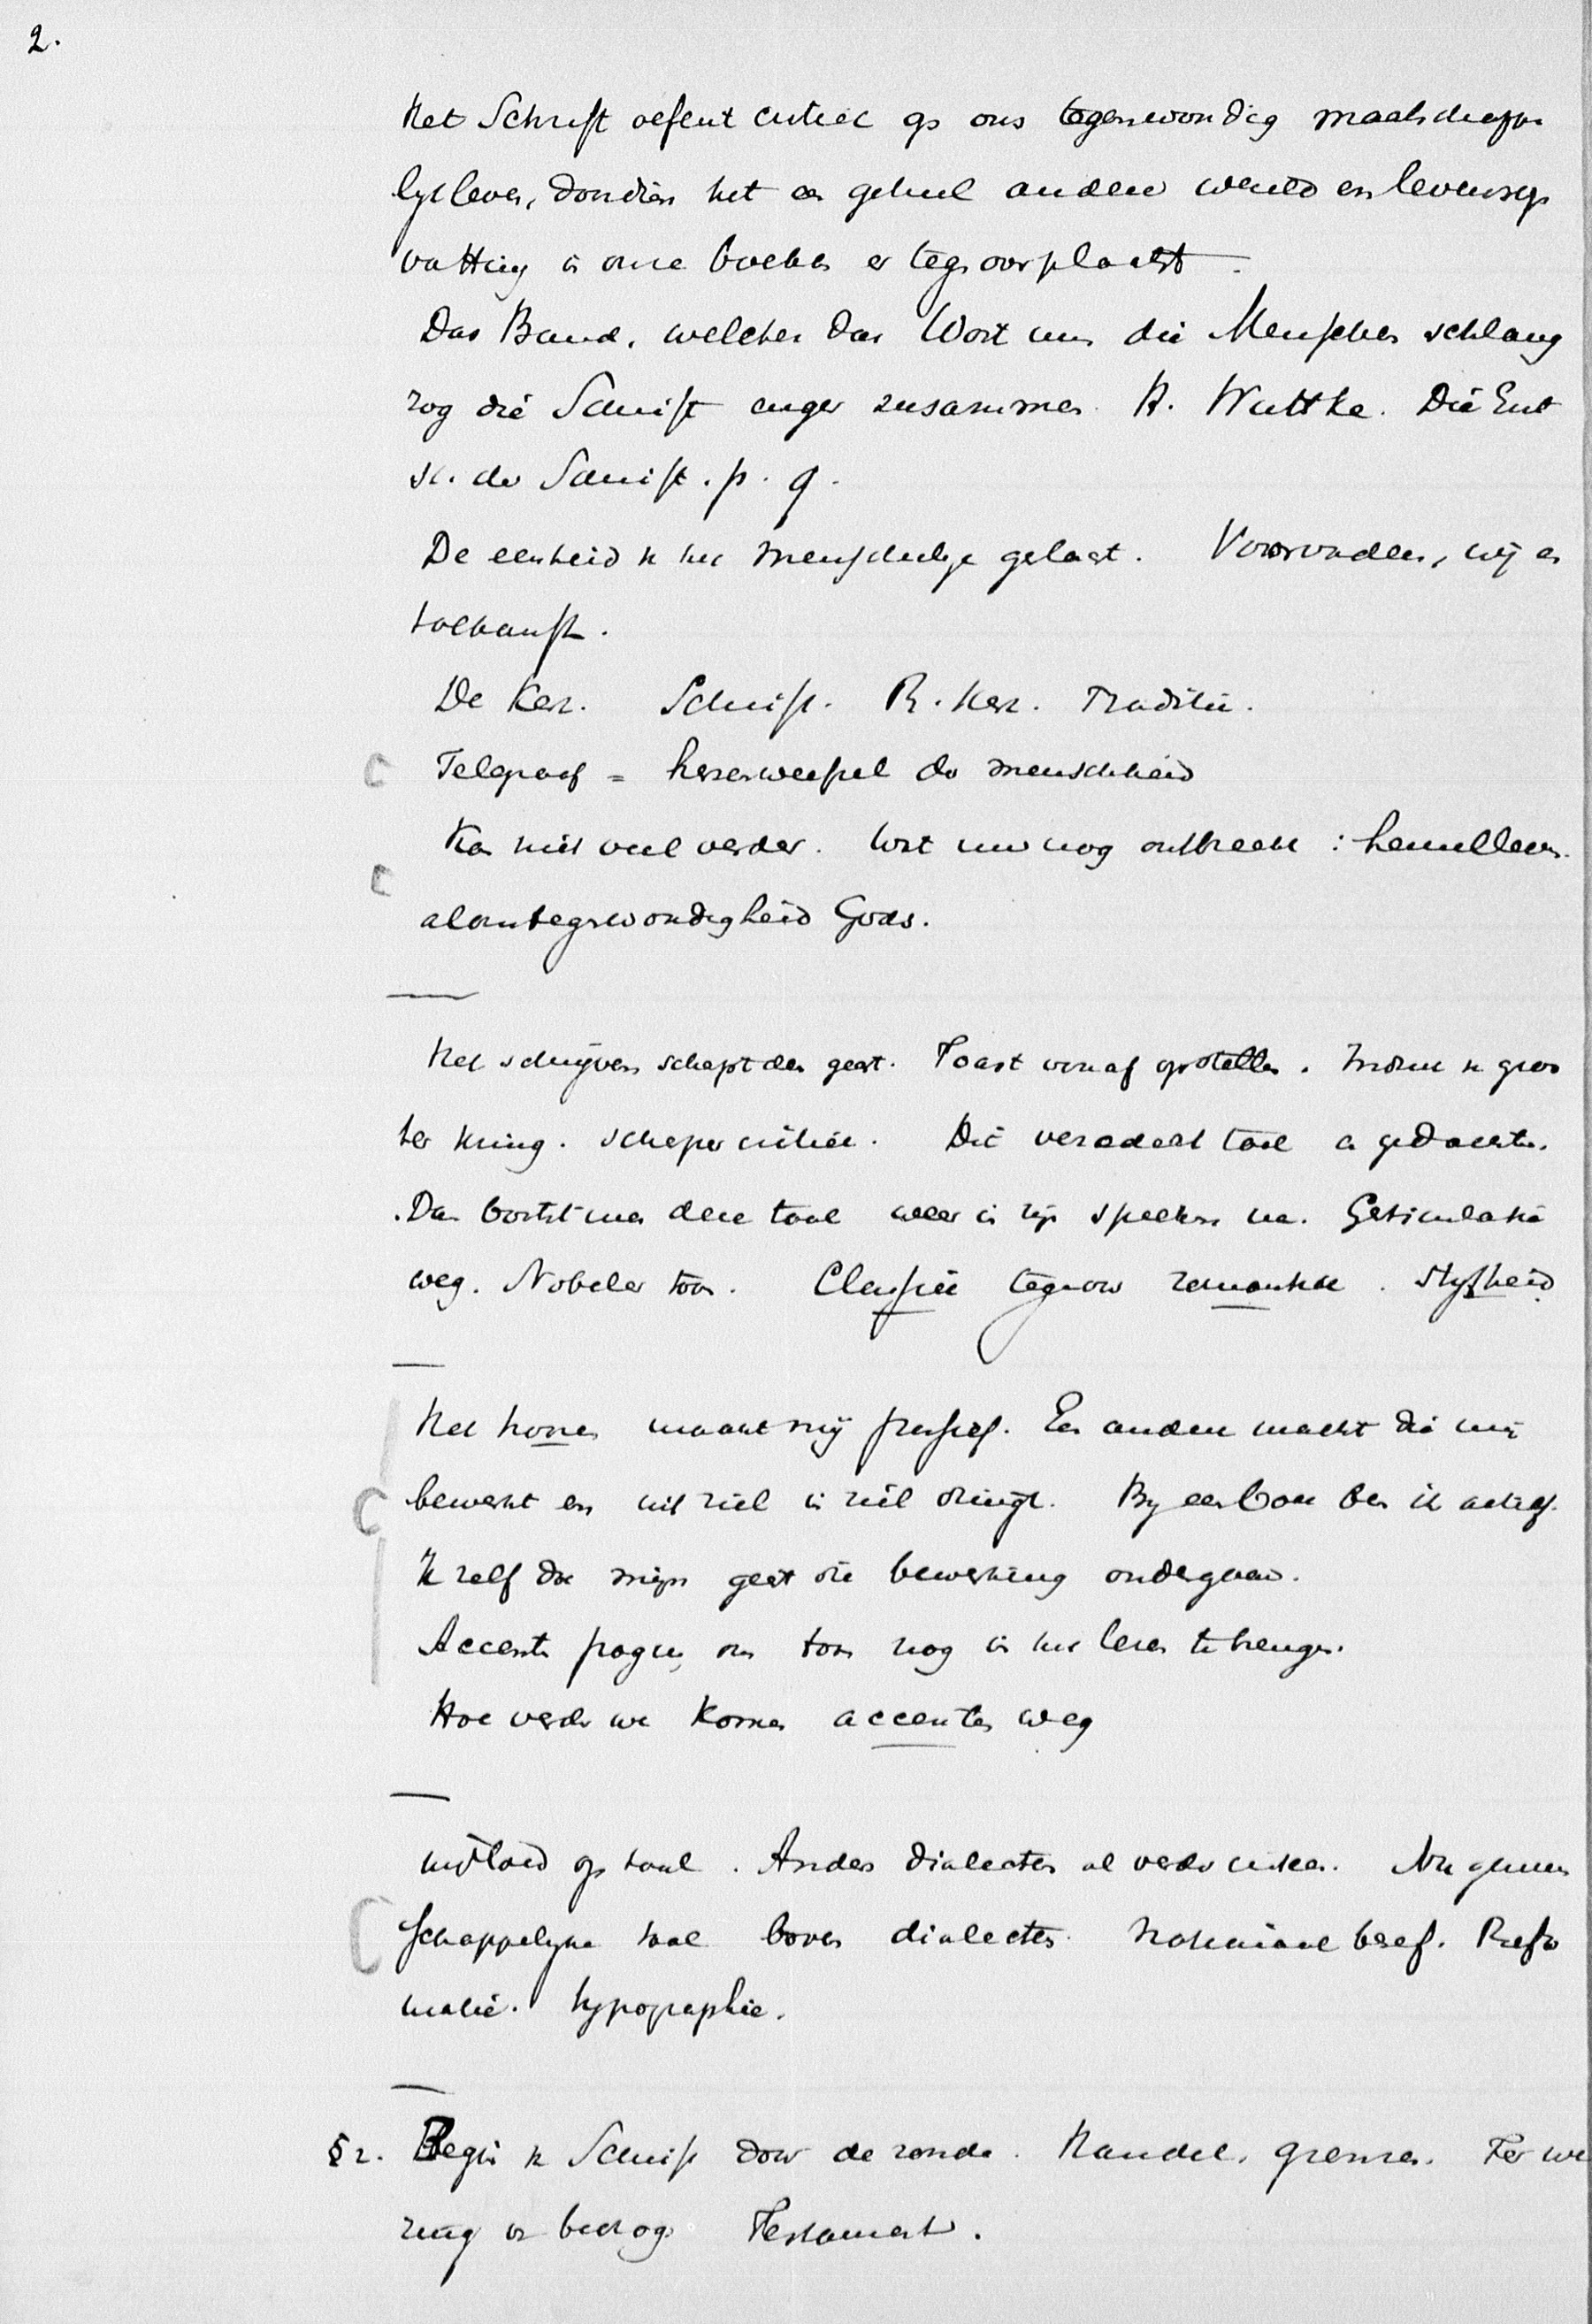 2.
Het Schrift oefent critiek op ons tegenwoordig maatschappe
lyk leven, doordien het een geheel andere wereld en levensop
vatting in onze boeken er tegenover plaatst.
Das Band, welches das Wort um die Menschen schlang
zog die Schrift enger zusammen. H. Wuttke. Die Ent
st. der Schrift. p. 9.
De eenheid v het menschelijk geslacht. Voorvaderen, wij en
toekomst.
De Kerk. Schrift. R. Kerk. Traditie.
Telegraaf = hersenweefsel der menschheid
Kan niet veel verder. Wat nu nog ontbreekt: hemelleven.
alomtegenwoordigheid Gods.
Het schrijven schept den geest. Toast vooraf opstellen. Indruk v groo
ter kring. scheper critiek. Dit veredelt taal en gedachte.
Dan bootst men deze taal weer in zijn spreken na. Gesticulatie
weg. Nobeler toon. Classiek tegenover romantiek. styfheid
Het hooren maakt mij passief. Een andere macht die mij
bewerkt en uit ziel in ziel dringt. By een boek ben ik actief.
Ik zelf doe mijn geest die bewerking ondergaan.
Accenten pogen, om toon nog in het lezen te brengen.
Hoe verder we komen accenten weg
invloed op taal. Anders dialecten al verder uiteen. Nu gemeen
schappelyke taal boven dialecten. Nationaal besef. Refor
matie. typographie.
§ 2. Begin v Schrift door de zonde. Handel, grenzen. Ter we
ring v bedrog. Testament.